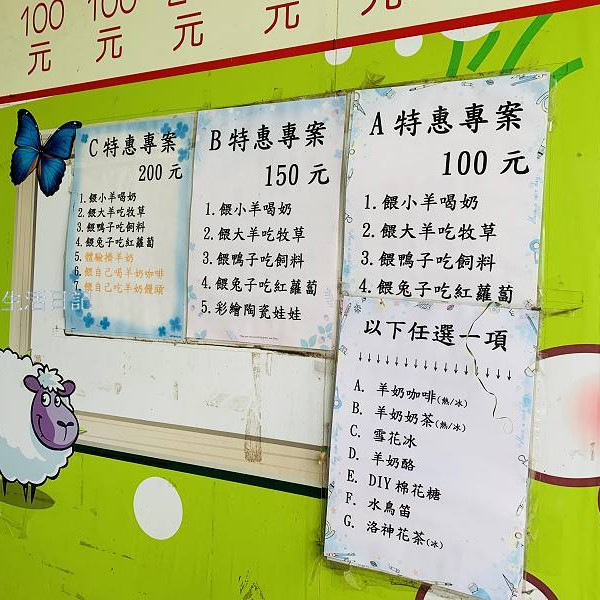 100
元
100
元
元
元
元
C 特惠專案
200 元
1. 餵小羊喝奶
2. 餵大羊吃牧草
3. 餵鴨子吃飼料
4. 餵兔子吃紅蘿蔔
5. 體驗擠羊奶
6. 餵自己喝羊奶咖啡
7. 餵自己吃羊奶饅頭
B 特惠專案
150 元
1. 餵小羊喝奶
2. 餵大羊吃牧草
3. 餵鴨子吃飼料
4. 餵兔子吃紅蘿蔔
5. 彩繪陶瓷娃娃
A 特惠專案
100 元
1. 餵小羊喝奶
2. 餵大羊吃牧草
3. 餵鴨子吃飼料
4. 餵兔子吃紅蘿蔔
以下任選一項
↓↓↓↓↓↓↓↓↓↓↓↓↓↓
A. 羊奶咖啡(熱/冰)
B. 羊奶奶茶(熱/冰)
C. 雪花冰
D. 羊奶酪
E. DIY 棉花糖
F. 水鳥笛
G. 洛神花茶(冰)
生活日記